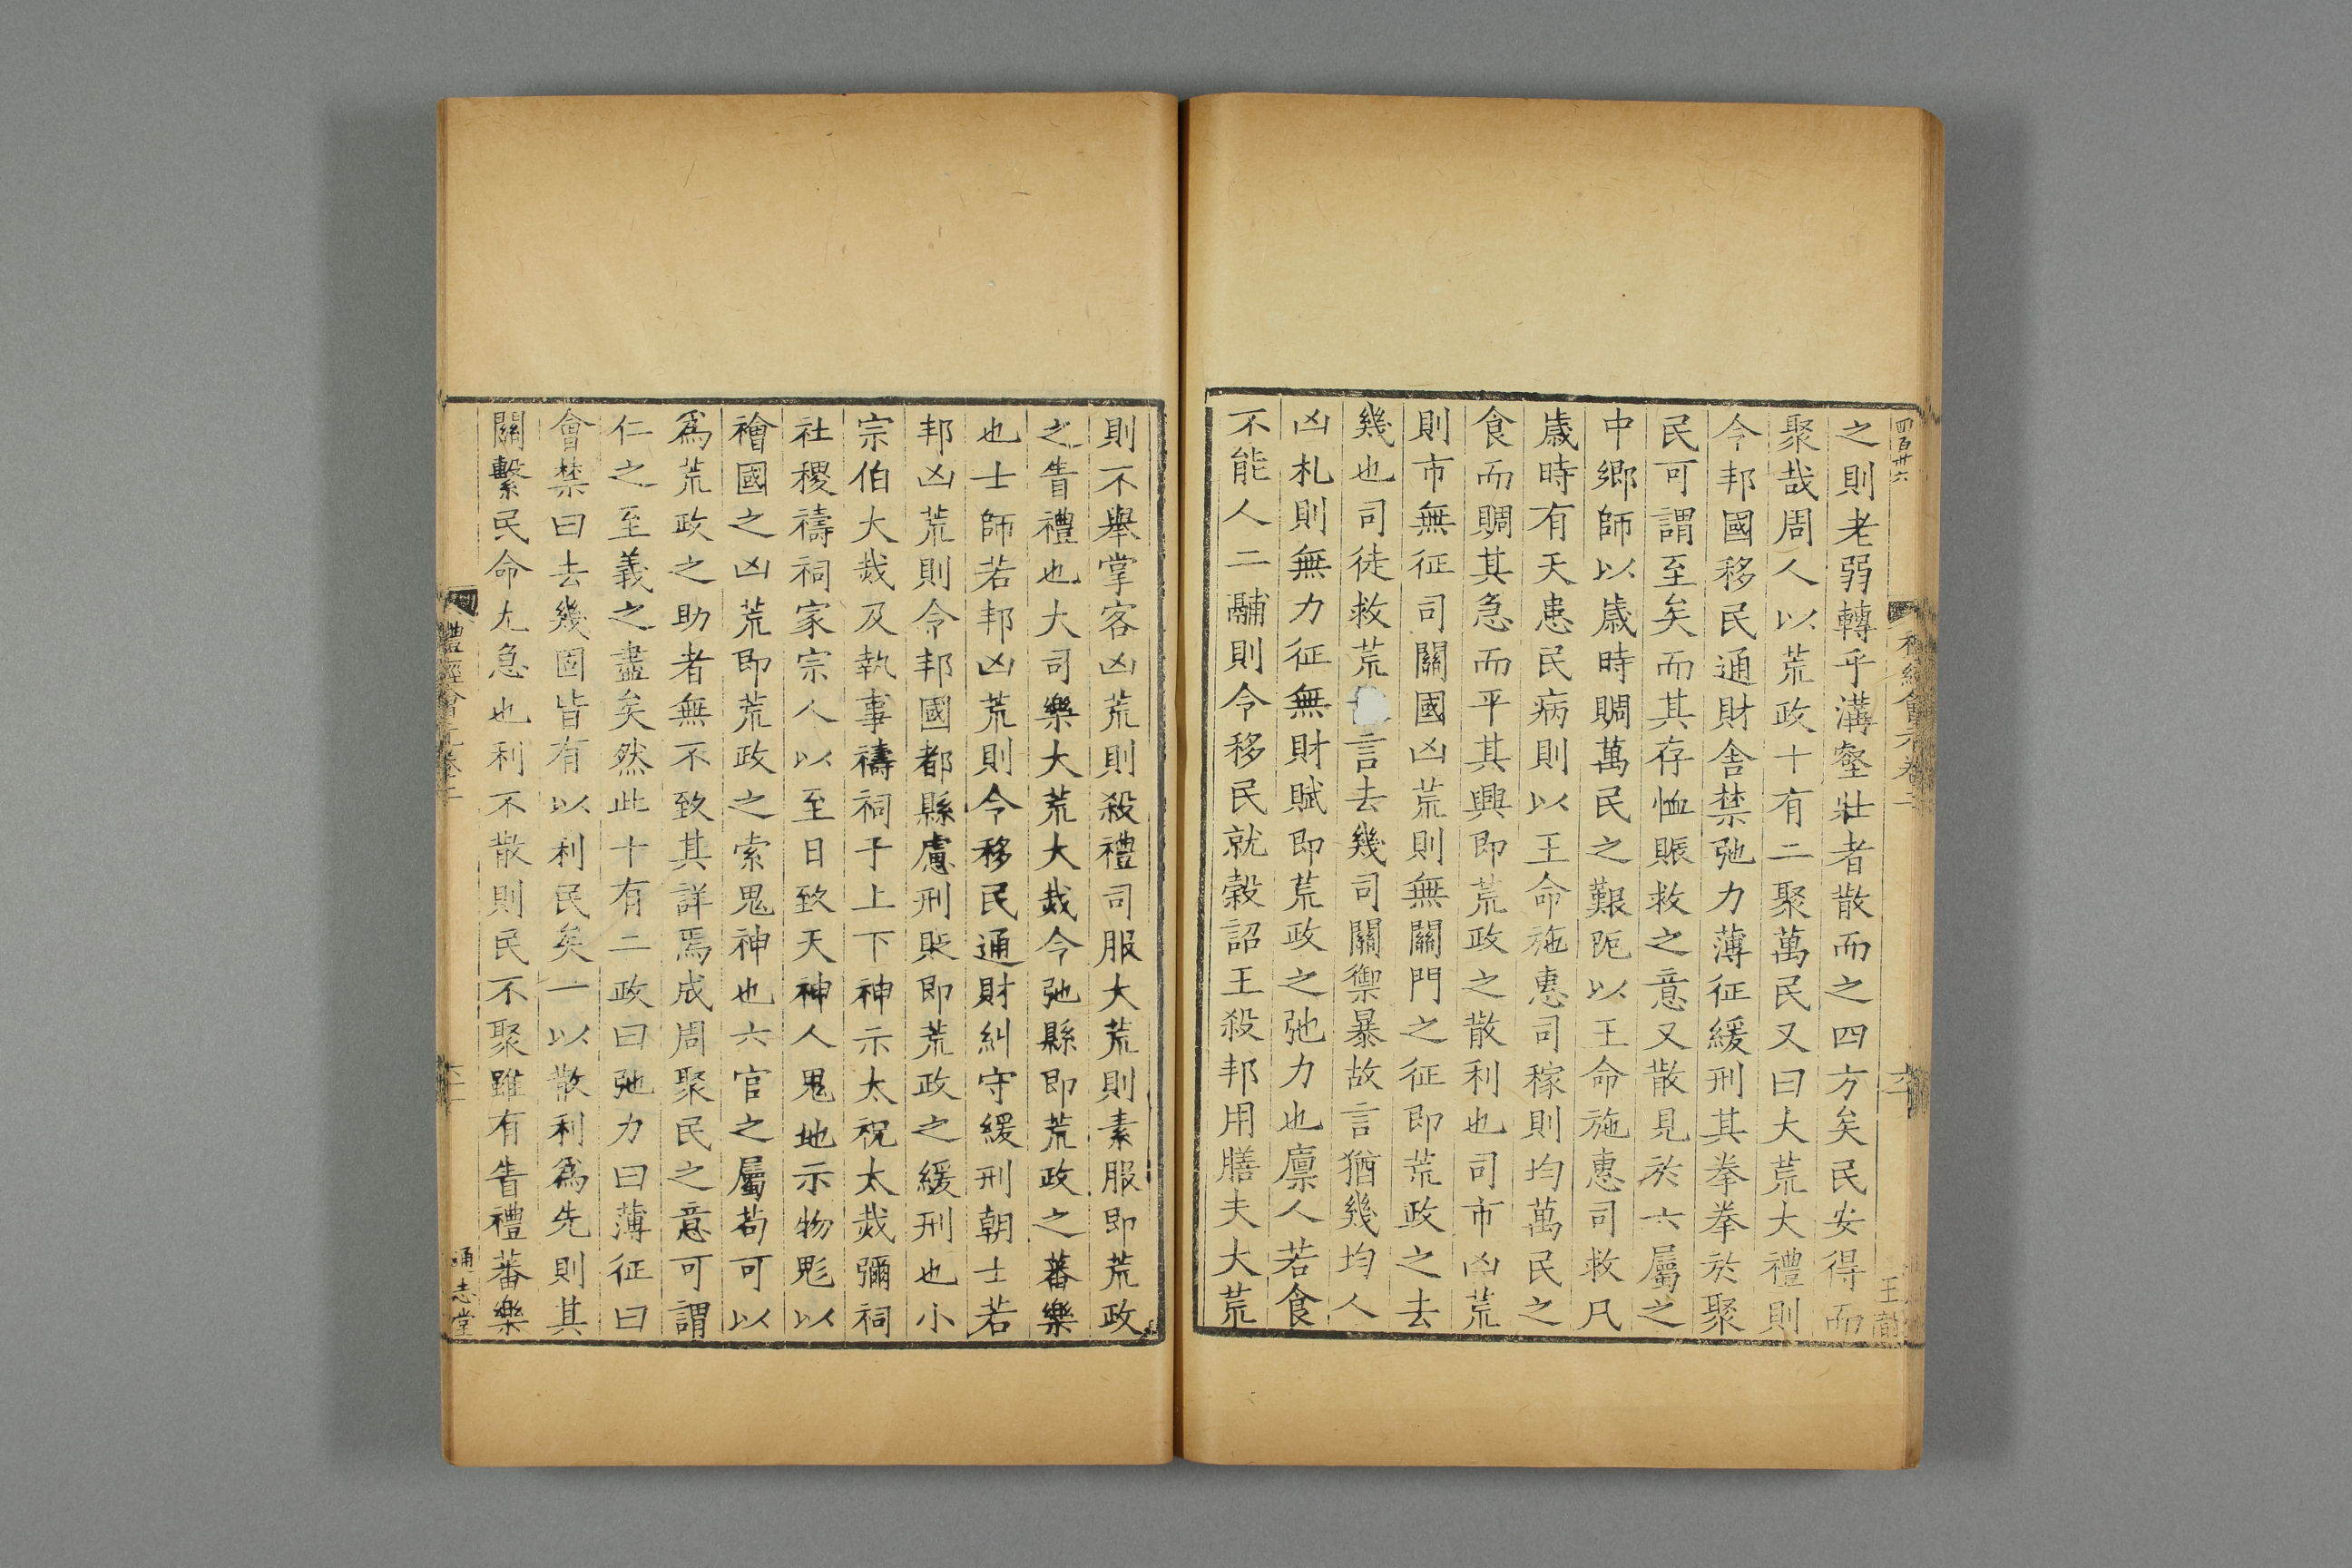 四百卅六
之則老弱轉乎溝壑壯者散而之四方矣民安得而
聚哉周人以荒政十有二聚萬民又曰大荒大禮則
令邦國移民通財舍禁弛力薄征緩刑其拳拳於聚
民可謂至矣而其存恤賑救之意又散見於六屬之
中鄉師以歲時賙萬民之艱阨以王命施惠司救凡
歲時有天患民病則以王命施惠司稼則均萬民之
食而賙其急而平其興即荒政之散利也司市凶荒
則市無征司關國凶荒則無關門之征即荒政之去
幾也司徒救荒言去幾司關禦暴故言猶幾均人
凶札則無力征無財賦即荒政之弛力也廩人若食
不能人二鬴則令移民就榖詔王殺邦用膳夫大荒
則不舉掌客凶荒則殺禮司服大荒則素服即荒政
之眚禮也大司樂大荒大烖令弛縣即荒政之蕃樂
也士師若邦凶荒則令移民通財糾守緩刑朝士若
邦凶荒則令邦國都縣慮刑貶即荒政之緩刑也小
宗伯大烖及執事禱祠于上下神示太祝太烖彌祠
社稷禱祠家宗人以至日致天神人鬼地示物鬽以
禬國之凶荒即荒政之索鬼神也六官之屬苟可以
爲荒政之助者無不致其詳焉成周聚民之意可謂
仁之至義之盡矣然此十有二政曰弛力曰薄征曰
會禁曰去幾固皆有以利民矣一以散利爲先則其
關繫民命尢急也利不散則民不聚雖有眚禮蕃樂
禮經會元卷
通志堂